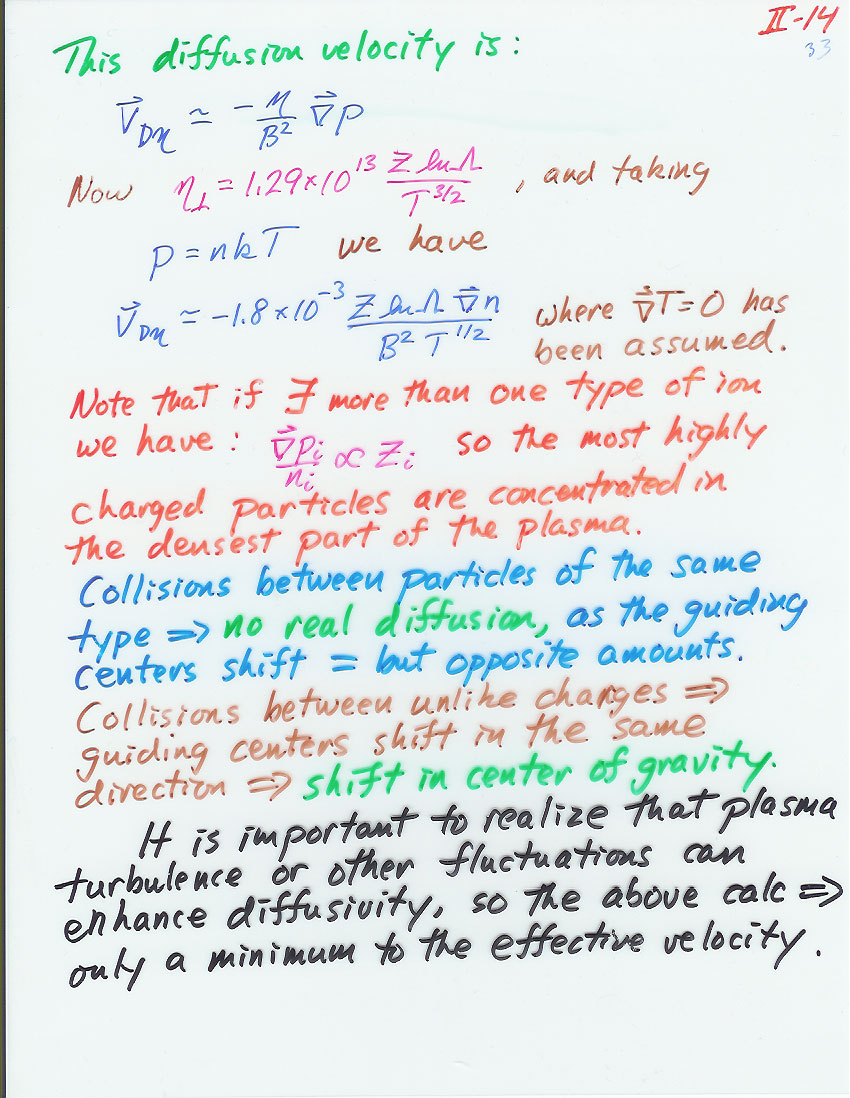 II-14
33
This diffusion velocity is:
V⃗_Dη ≃ -η/B² ∇⃗p
Now η⊥ = 1.29×10¹³ Z lnΛ / T^3/2 , and taking
p = nkT we have
V⃗_Dη ≃ -1.8×10⁻³ Z lnΛ ∇⃗n / B² T^1/2 where ∇⃗T=0 has
been assumed.
Note that if ∃ more than one type of ion
we have: ∇⃗p_i/n_i ∝ Z_i so the most highly
charged particles are concentrated in
the densest part of the plasma.
Collisions between particles of the same
type ⇒ no real diffusion, as the guiding
centers shift = but opposite amounts.
Collisions between unlike charges ⇒
guiding centers shift in the same
direction ⇒ shift in center of gravity.
It is important to realize that plasma
turbulence or other fluctuations can
enhance diffusivity, so the above calc ⇒
only a minimum to the effective velocity.